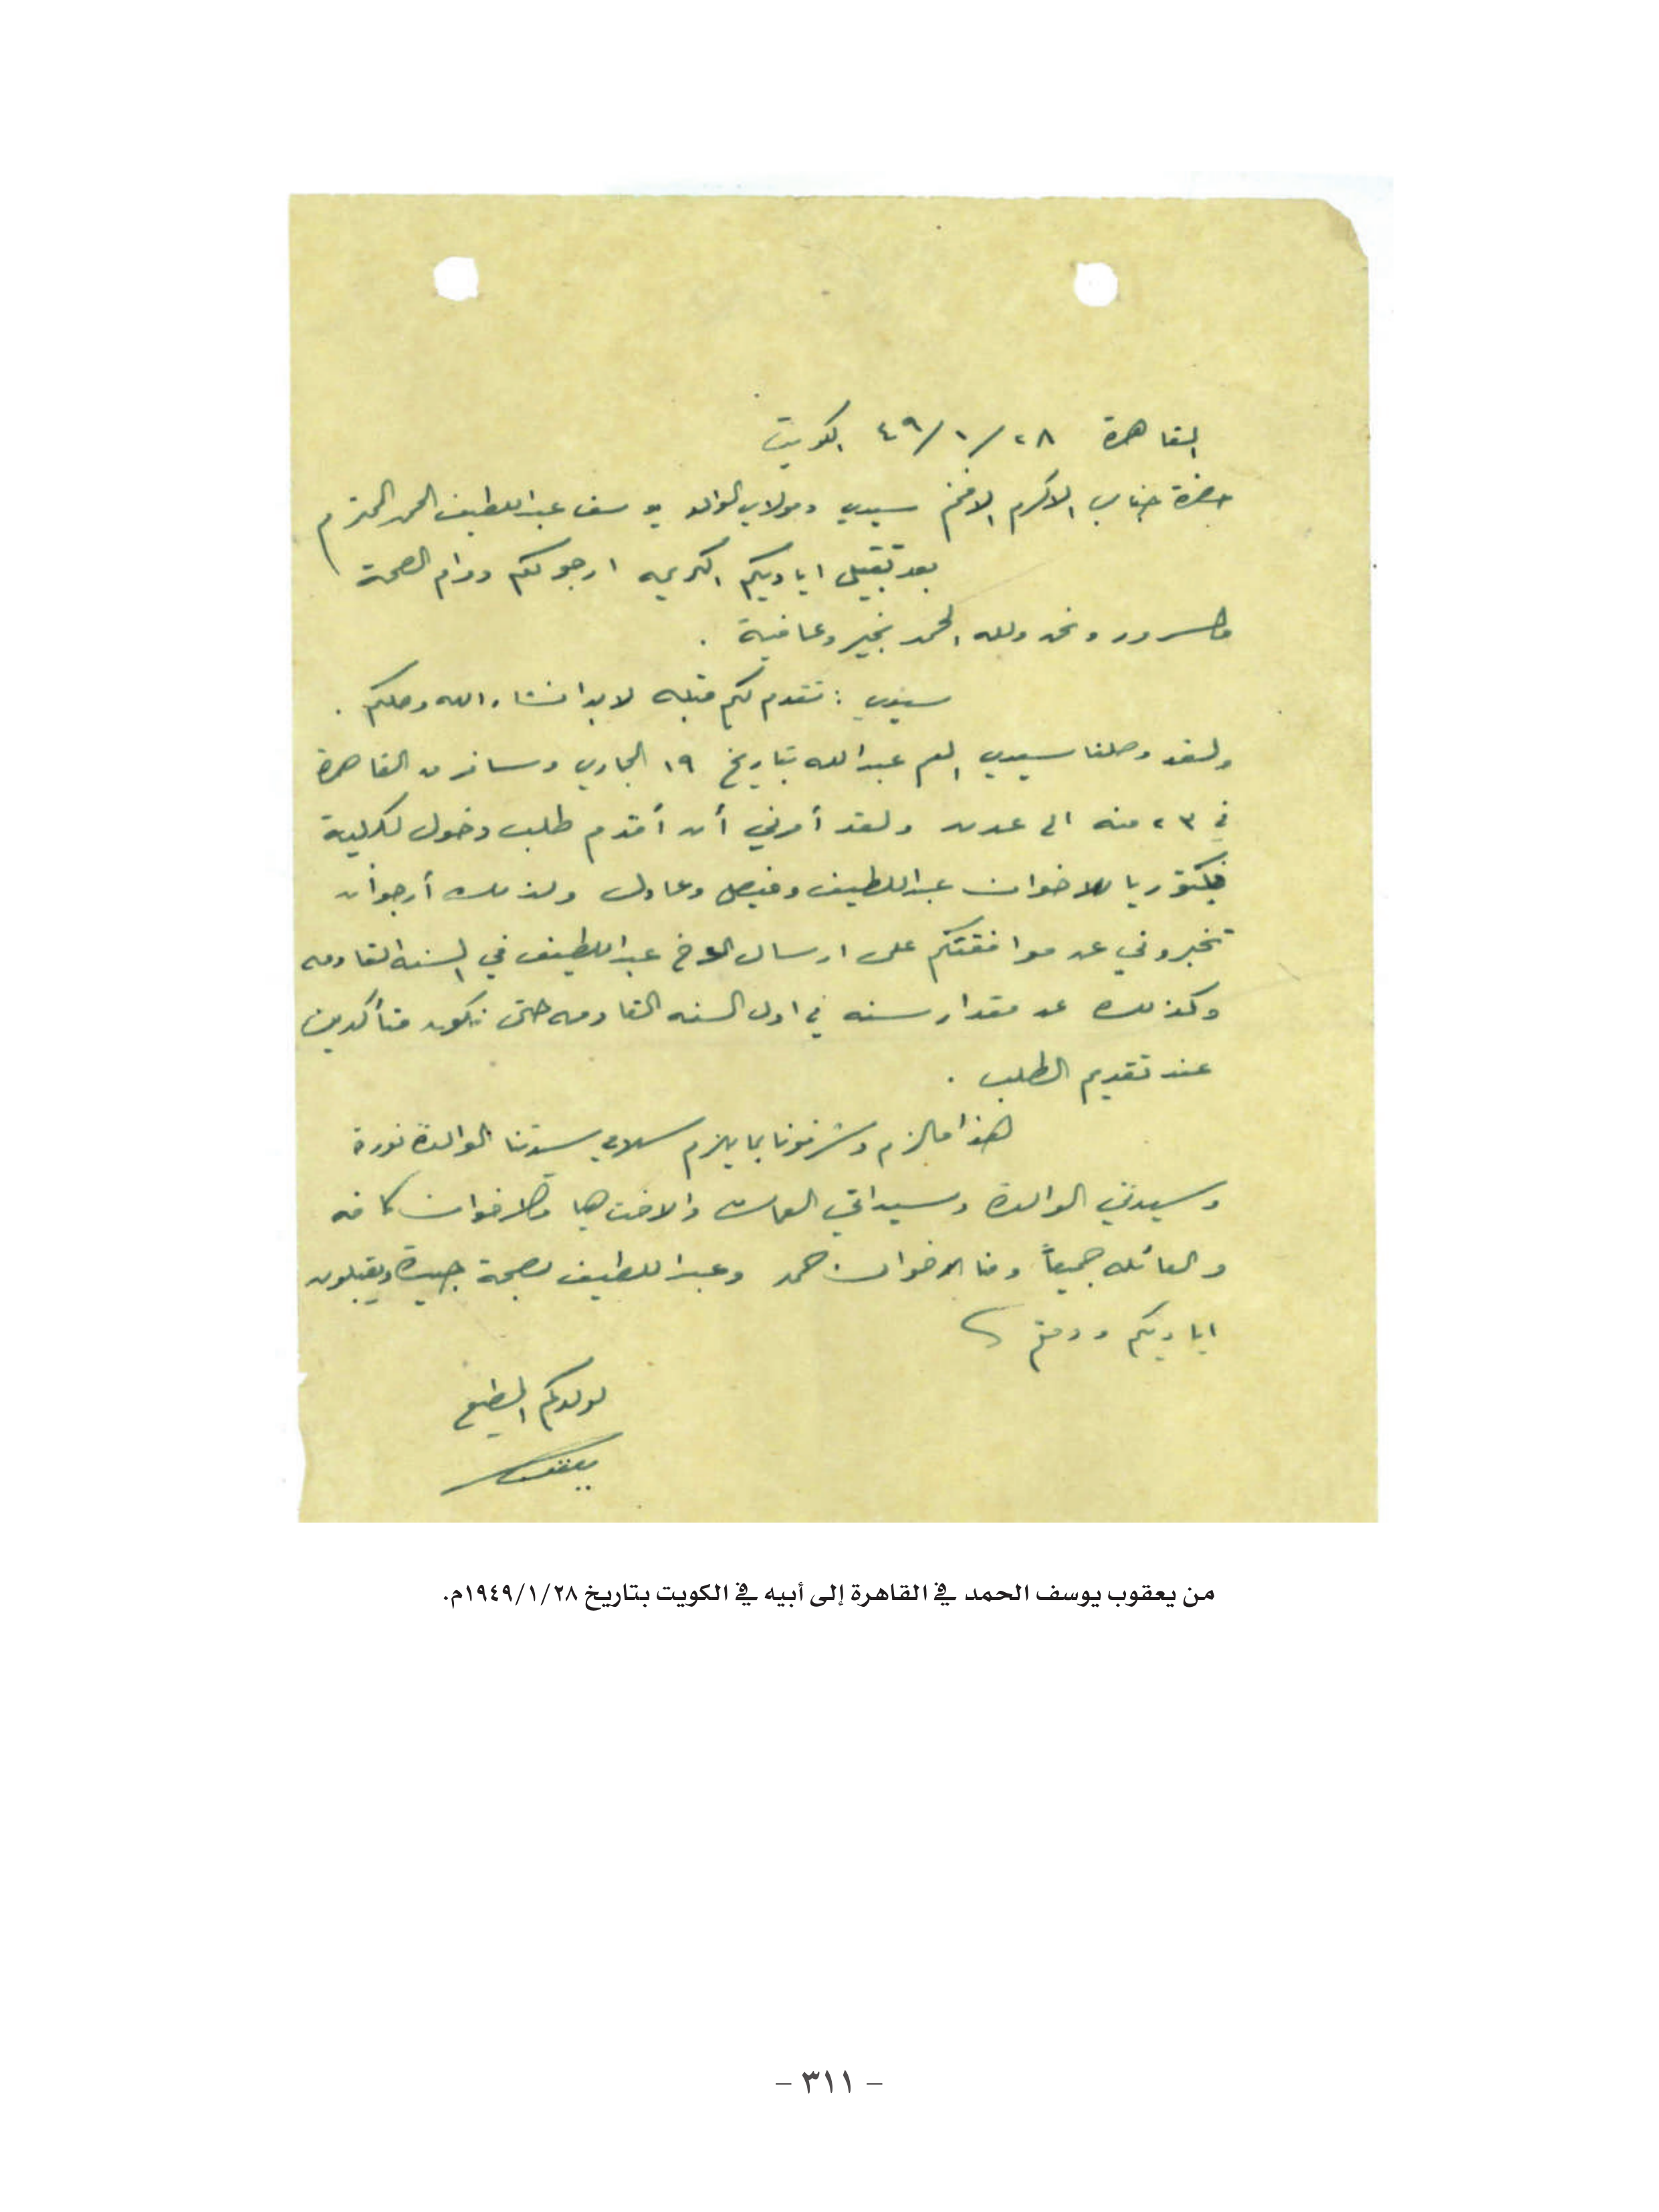 القاهرة ٢٨/١/٤٩ الكويت
حضرة جناب الاكرم الافخم سيدي ومولاي الوالد يوسف عبداللطيف الحمد المحترم
بعد تقبيل اياديكم الكريمه ارجو لكم دوام الصحة
والسرور ونحن ولله الحمد بخير وعافية .
سيدي : تقدم لكم قبله لابد انشاء الله وصلكم .
ولقد وصلنا سيدي العم عبدالله بتاريخ ١٩ الجاري وسافر من القاهرة
في ٢٣ منه الى عدن ولقد أمرني أن أقدم طلب دخول لكلية
فيكتوريا للاخوان عبداللطيف وفيصل وعادل ولذلك أرجو أن
تخبروني عن موافقتكم على ارسال الاخ عبداللطيف في السنه القادمه
وكذلك عن مقدار سنه في اول السنه القادمه حتى نكون متأكدين
عند تقديم الطلب .
هذا مالزم وشرفونا بما يلزم سلامي سيدتنا الوالدة نورة
وسيدتي الوالدة وسيداتي العمات والاخت هيا والاخوان كافه
والعائله جميعاً ومنا الاخوان حمد وعبداللطيف بصحة جيدة ويقبلون
اياديكم ودمتم
لولدكم المطيع
يعقوب
من يعقوب يوسف الحمد في القاهرة إلى أبيه في الكويت بتاريخ ١٩٤٩/١/٢٨م.
– ٣١١ –